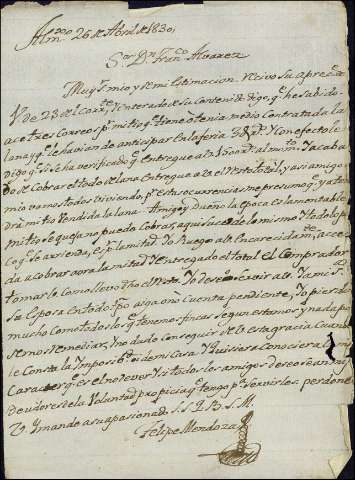 Alm.ro 26 de Abril de 1830,
S.or D.n Fran.co Alvarez
Muy S.r mio y de mi estimacion. Recivo su apreciada
de 23 del corr.te enterado de su contenido digo, q.e he
hace tres correos p.r mi tio q.e tiene o tenia medio Contratada la
lana y q.e le havian de anticipar en la feria 38 y con efecto le
digo q.e si se ha verificado q.e Entregue a V. 1500 r.s al mto. Y acaba
do de Cobrar el todo de lana Entregue a V. el Resto total, y asi amigo
mio vamos todos viviendo, p.r esta ocurrencia me presumo q.e ya ten
drá mi tio vendida la lana. Amigo y Dueño la epoca es lamentable
mi tio se queja no puedo Cobrar, aqui sucede lo mismo y todo lo po
co q.e se arrienda, es p.r la mitad. Yo Ruego a V. Encarecidam.te acce
da a cobrar aora la mitad Y Entregado el total El Comprador
tomar lo como llevo dho el Resto. Yo deseo servir a V. Y a mi S.ra
su Esposa en todo, Pero asga o no Cuenta pendiente, Yo pierdo
mucho Como todos los q.e tenemos fincas segun estamos y nada po
demos Remediar, no dudo conseguir de V. esta gracia Cuando
le Consta la Imposib.d de mi Casa Y quisiera Conociera mi
Caracter q.e es el no dever Y si todos los amigos deseo sean
deudores de la Voluntad propicia q.e tengo p.a servirles perdone
V. y mande a su apasionado S. S. Q. B. S. M.
Felipe Mendoza